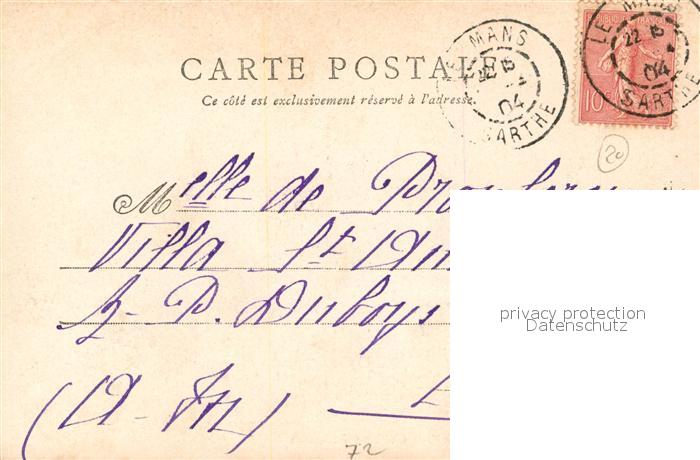 CARTE POSTALE
Ce côté est exclusivement réservé à l'adresse.
LE MANS
22
04
SARTHE
LE MANS
22
04
SARTHE
10c
20
Melle de
Villa St
P. Duboys
(A-M)
privacy protection
Datenschutz
72